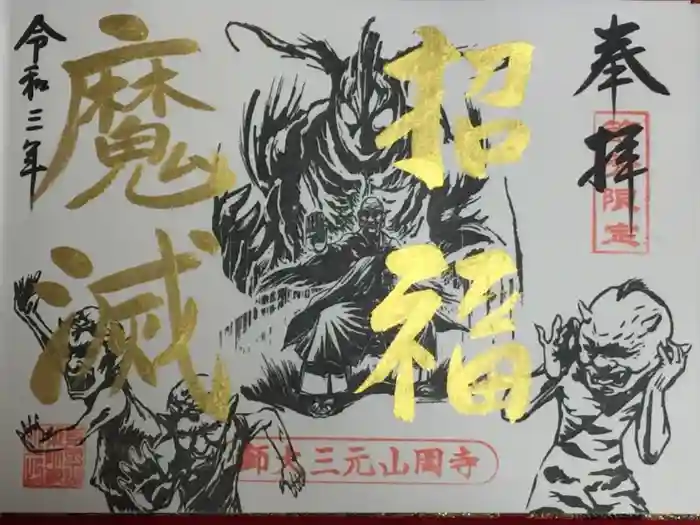 奉拝
招福
魔滅
令和三年
限定
師大三元山岡寺